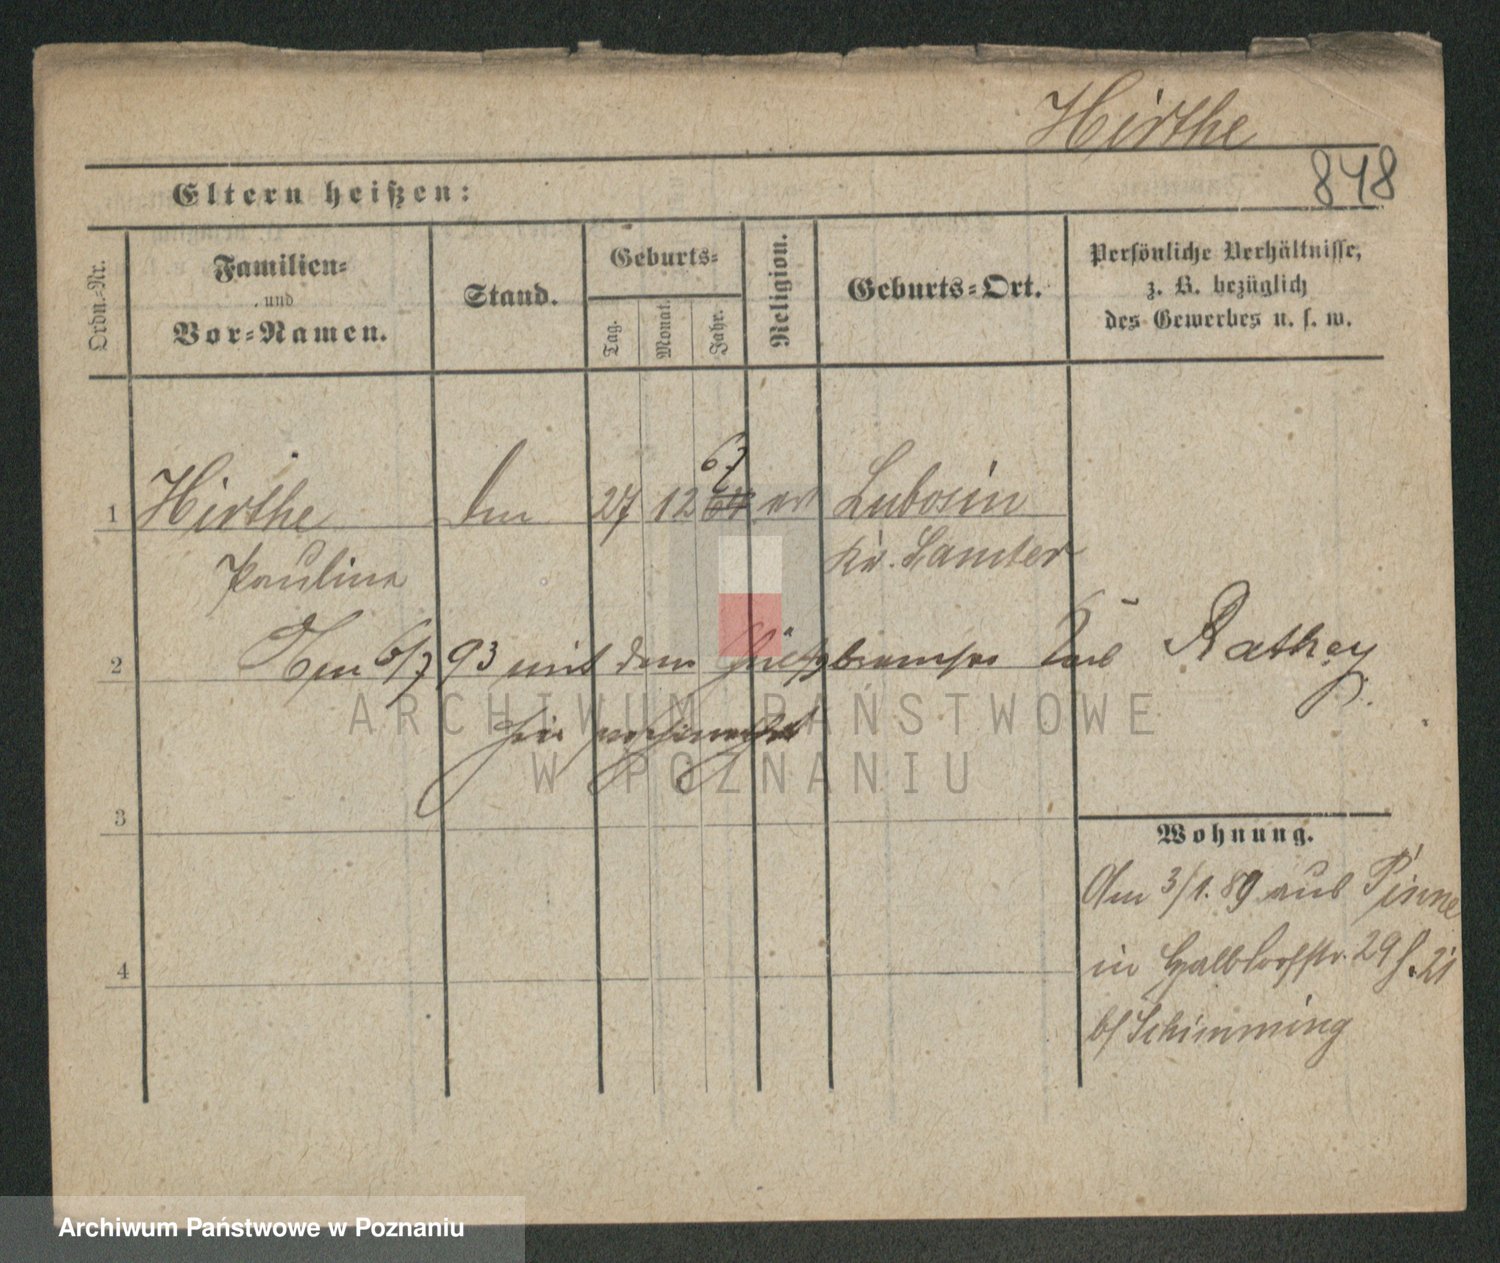 Hirthe
848
Eltern heißen:
Ordn.-Nr.
Familien-
und
Vor-Namen.
Stand.
Geburts-
Tag.
Monat.
Jahr.
Religion.
Geburts-Ort.
Persönliche Verhältnisse,
z. B. bezüglich
des Gewerbes u. s. w.
1 Hirthe 27 12 67 Lubosin
Pauline Kr. Samter
2 6/7 93 mit dem Carl Rathey
hier
ARCHIWUM PAŃSTWOWE
W POZNANIU
3
Wohnung.
Am 3/1. 89 aus Pinne
in Halbdorfstr. 29
4
b/ Schimming
Archiwum Państwowe w Poznaniu